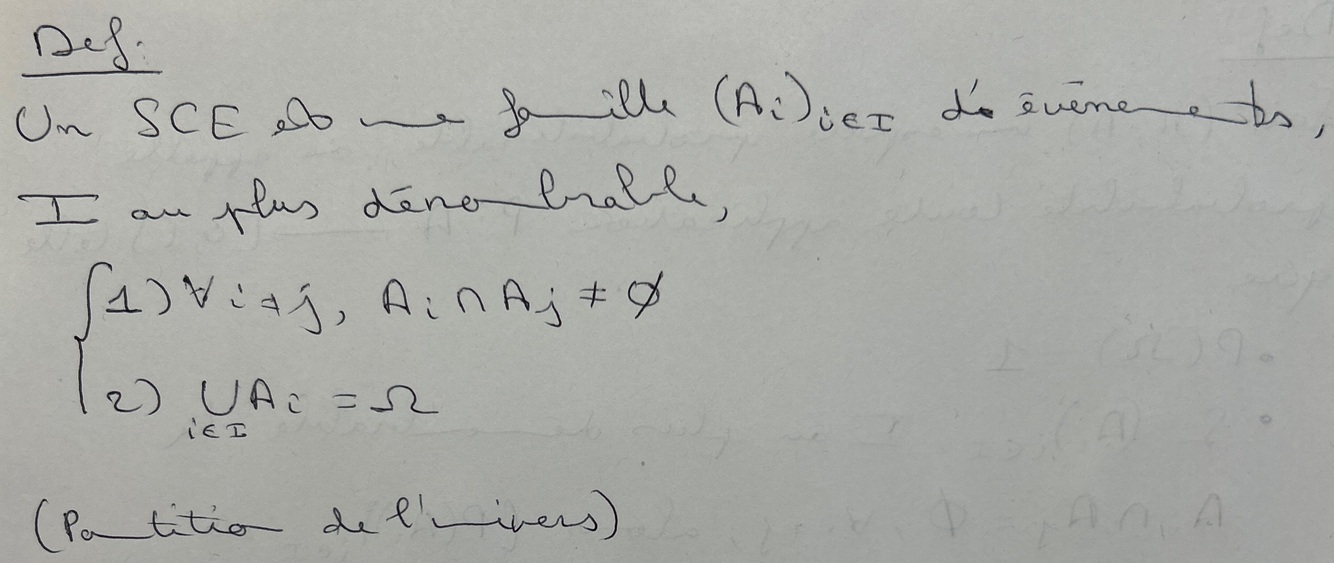 Def:
Un SCE est une famille (Ai)i∈I d'évènements,
I au plus dénombrable,
1) ∀ i ≠ j, Ai ∩ Aj ≠ ∅
2) ∪ Ai = Ω
i∈I
(Partition de l'univers)